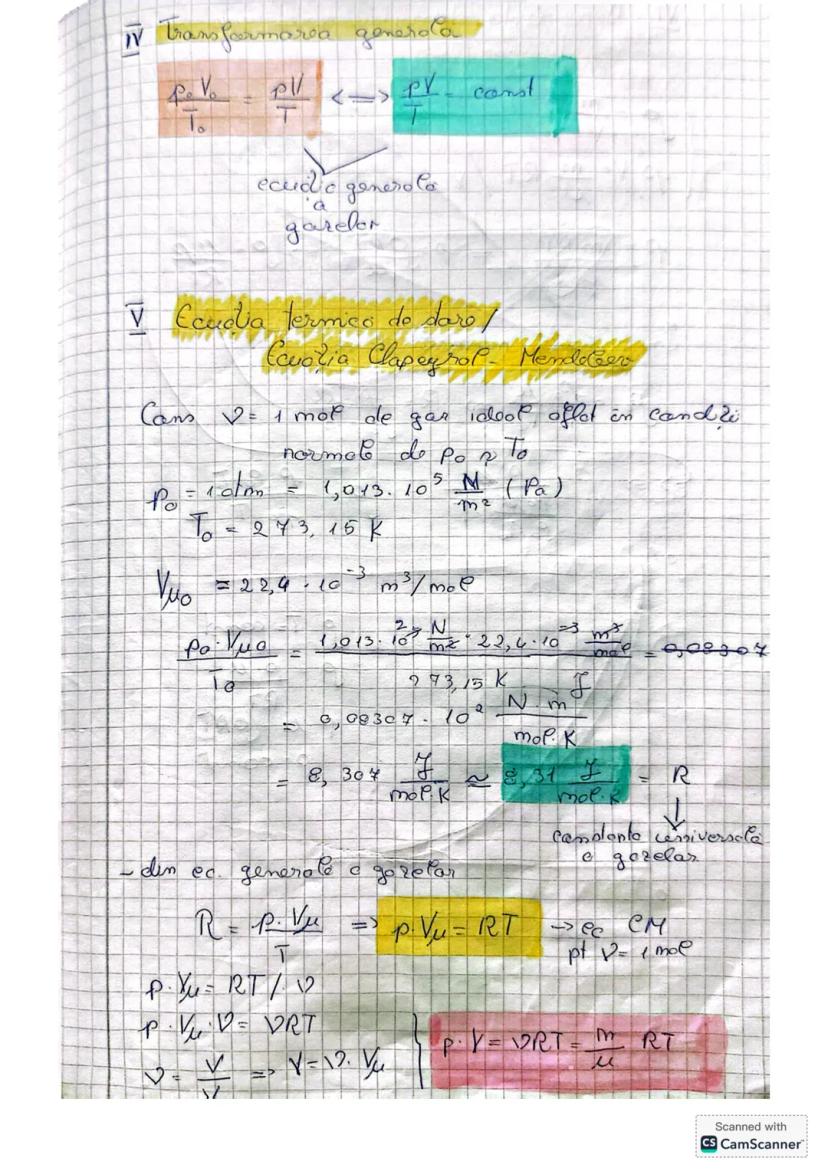 IV Transformarea generală
p₀V₀/T₀ = pV/T <=> pV/T = const
ecuație generală
a
gazelor
V Ecuația termică de stare/
Ecuația Clapeyrol- Mendeleev
Cons ν = 1 mol de gaz ideal aflat în condiții
normale de p₀ și T₀
p₀ = 1 atm = 1,013 · 10⁵ N/m² (Pa)
T₀ = 273,15 K
Vμ₀ = 22,4 · 10⁻³ m³/mol
p₀·Vμ₀/T₀ = 1,013·10⁵ N/m² · 22,4·10⁻³ m³/mol / 273,15 K = 0,08307
= 0,08307 · 10² N·m/mol·K J
= 8,307 J/mol·K ≃ 8,31 J/mol·K = R
constanta universală
a gazelor
- din ec. generală a gazelor
R = p·Vμ/T => p·Vμ = RT → ec CM
pt ν = 1 mol
p·Vμ = RT /·ν
p·Vμ·ν = νRT
p·V = νRT = m/μ RT
ν = V/V => V = ν·Vμ
Scanned with
CS CamScanner